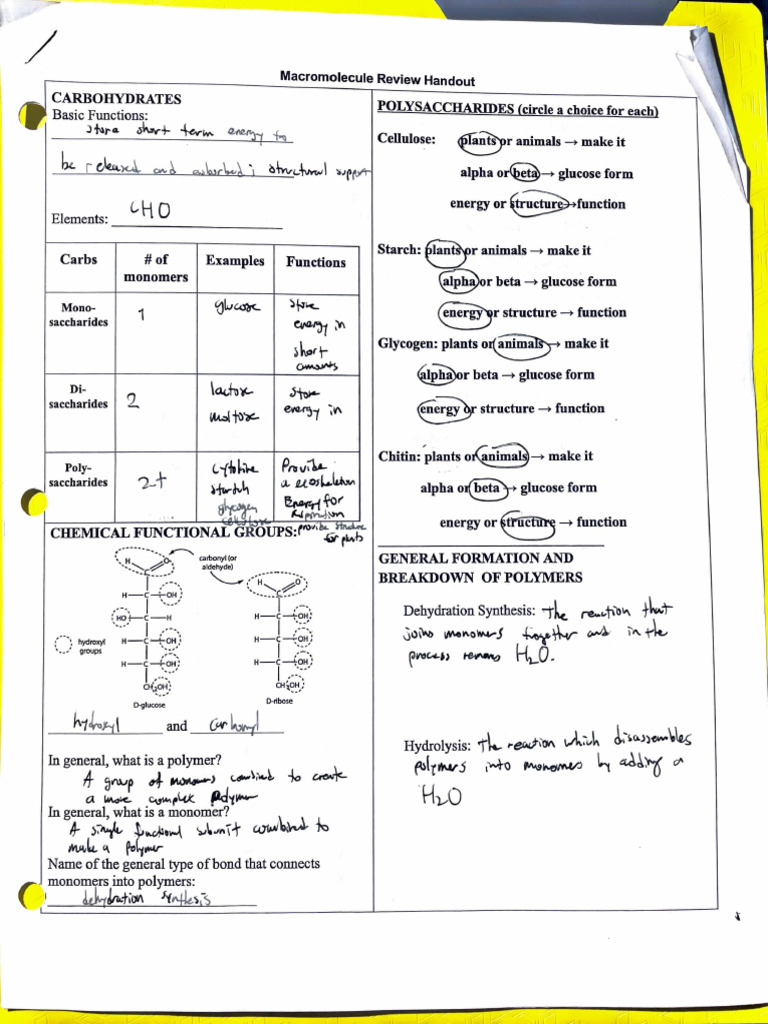 Macromolecule Review Handout
CARBOHYDRATES
Basic Functions:
store short term energy to
be released and absorbed; structural support
Elements: CHO
Carbs
# of monomers
Examples
Functions
Mono-saccharides
1
glucose
store
energy in
short
amounts
Di-saccharides
2
lactose
maltose
store
energy in
Poly-saccharides
2+
starch
glycogen
cellulose
Provide
a
Energy for
provide structure
for plants
CHEMICAL FUNCTIONAL GROUPS:
carbonyl (or
aldehyde)
H C O
H C O
H—C—OH
H—C—OH
HO—C—H
H—C—OH
hydroxyl
groups
H—C—OH
H—C—OH
H—C—OH
CH₂OH
CH₂OH
D-glucose
D-ribose
hydroxyl and carbonyl
In general, what is a polymer?
A group of monomers combined to create
a more complex polymer
In general, what is a monomer?
A single functional subunit combined to
make a polymer
Name of the general type of bond that connects
monomers into polymers:
dehydration synthesis
POLYSACCHARIDES (circle a choice for each)
Cellulose: plants or animals → make it
alpha or beta → glucose form
energy or structure → function
Starch: plants or animals → make it
alpha or beta → glucose form
energy or structure → function
Glycogen: plants or animals → make it
alpha or beta → glucose form
energy or structure → function
Chitin: plants or animals → make it
alpha or beta → glucose form
energy or structure → function
GENERAL FORMATION AND
BREAKDOWN OF POLYMERS
Dehydration Synthesis: The reaction that
joins monomers together and in the
process removes H₂O.
Hydrolysis: the reaction which disassembles
polymers into monomers by adding a
H₂O